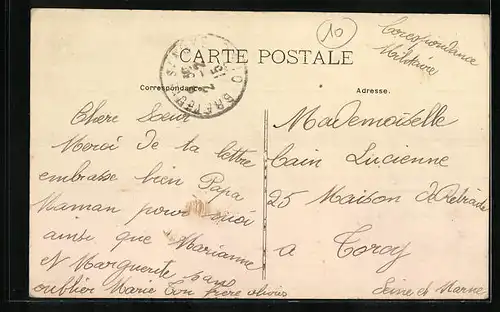 10
Correspondance
Militaire
CARTE POSTALE
Correspondance.
Adresse.
Chere Sœur
Merci de ta lettre
embrasse bien Papa
Maman pour moi
ainsi que Marianne
et Marguerite sans
oublier Marie Ton frere
Mademoiselle
Cain Lucienne
25 Maison
a Torcy
Seine et Marne